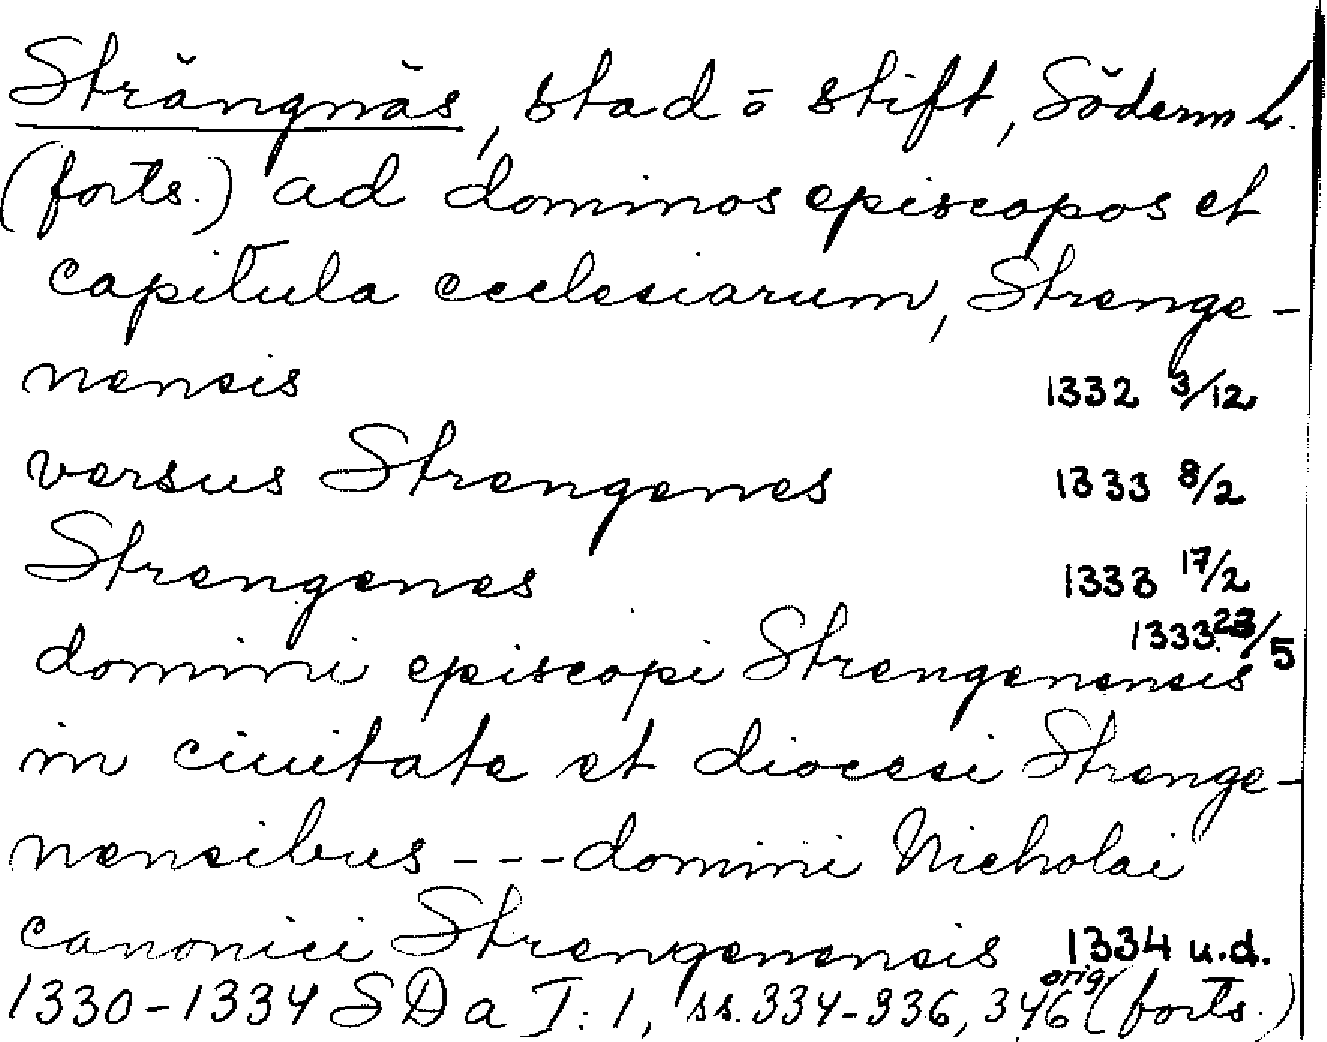 Strängnäs, stad o stift, Söderm L.
(forts.) ad dominos episcopos et
capitula ecclesiarum, Strenge-
nensis 1332 3/12
versus Strengenes 1333 8/2
Strengenes 1333 17/2
1333. 23/5
domini episcopi Strengenensis
in ciuitate et diocesi Strenge-
nensibus --- domini Nicholai
canonici Strengenensis 1334 u.d.
1330-1334 SD a I: 1, ss. 334-336, 346 orig (forts.)